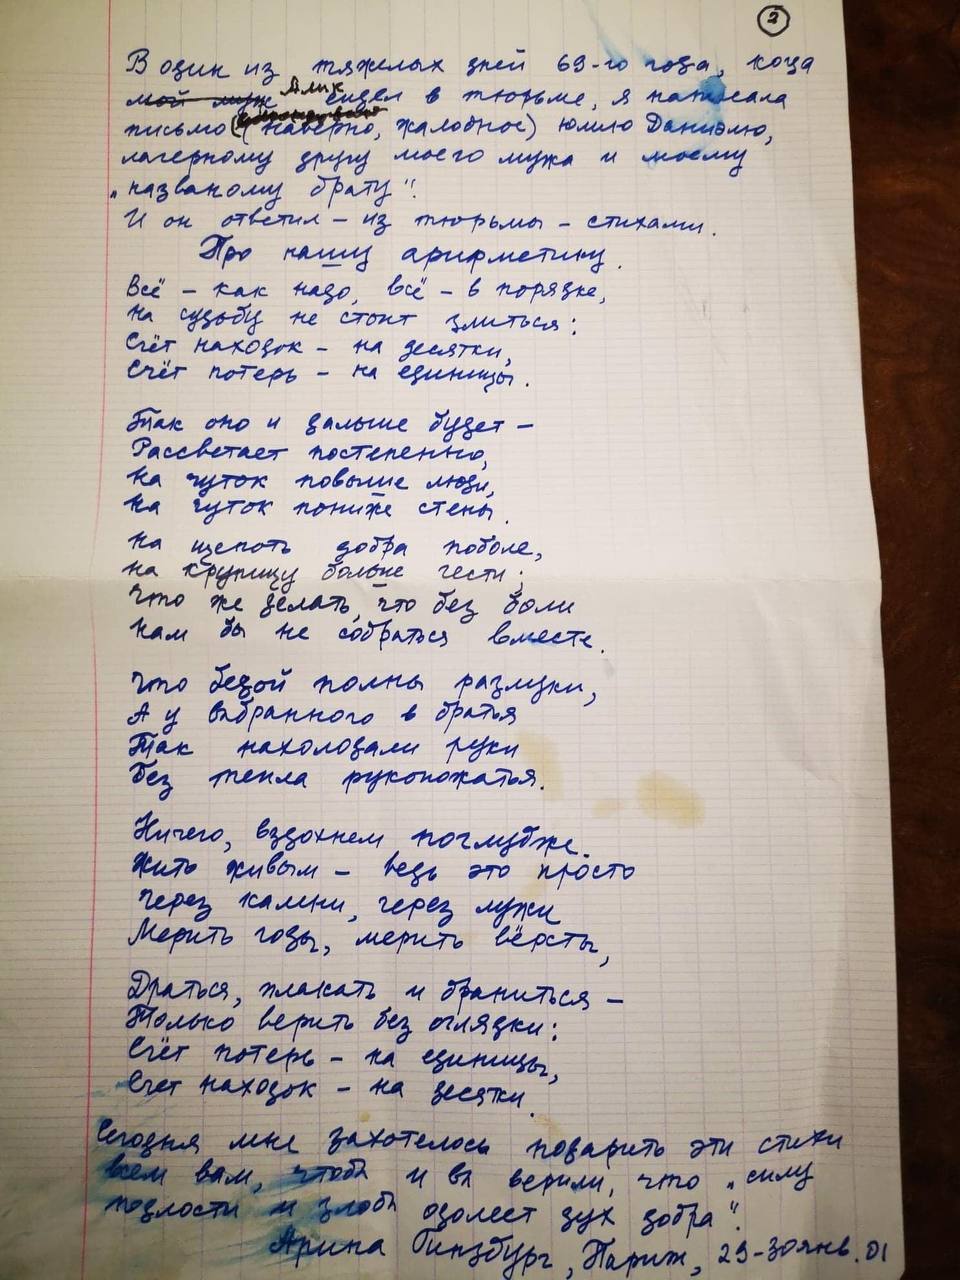 2
В один из тяжелых дней 69-го года, когда
мой муж Алик сидел в тюрьме, я написала
письмо (наверно, жалобное) Юлию Даниэлю,
лагерному другу моего мужа и моему
„названому брату“.
И он ответил – из тюрьмы – стихами.
Про нашу арифметику.
Всё – как надо, всё – в порядке,
На судьбу не стоит злиться:
Счёт находок – на десятки,
Счёт потерь – на единицы.
Так оно и дальше будет –
Рассветает постепенно,
На чуток повыше люди,
На чуток пониже стены.
На щепоть добра поболе,
На крупицу больше чести;
Что же делать, что без боли
Нам бы не собраться вместе.
Что бедой полны разлуки,
А у выбранного в братья
Так нахолодали руки
Без тепла рукопожатья.
Ничего, вздохнем поглубже.
Жить живым – ведь это просто
Через камни, через лужи
Мерить годы, мерить вёрсты,
Драться, плакать и браниться –
Только верить без оглядки:
Счёт потерь – на единицы,
Счет находок – на десятки.
Сегодня мне захотелось подарить эти стихи
всем вам, чтобы и вы верили, что „силу
подлости и злобы одолеет дух добра“.
Арина Гинзбург, Париж, 29-30 янв. 01